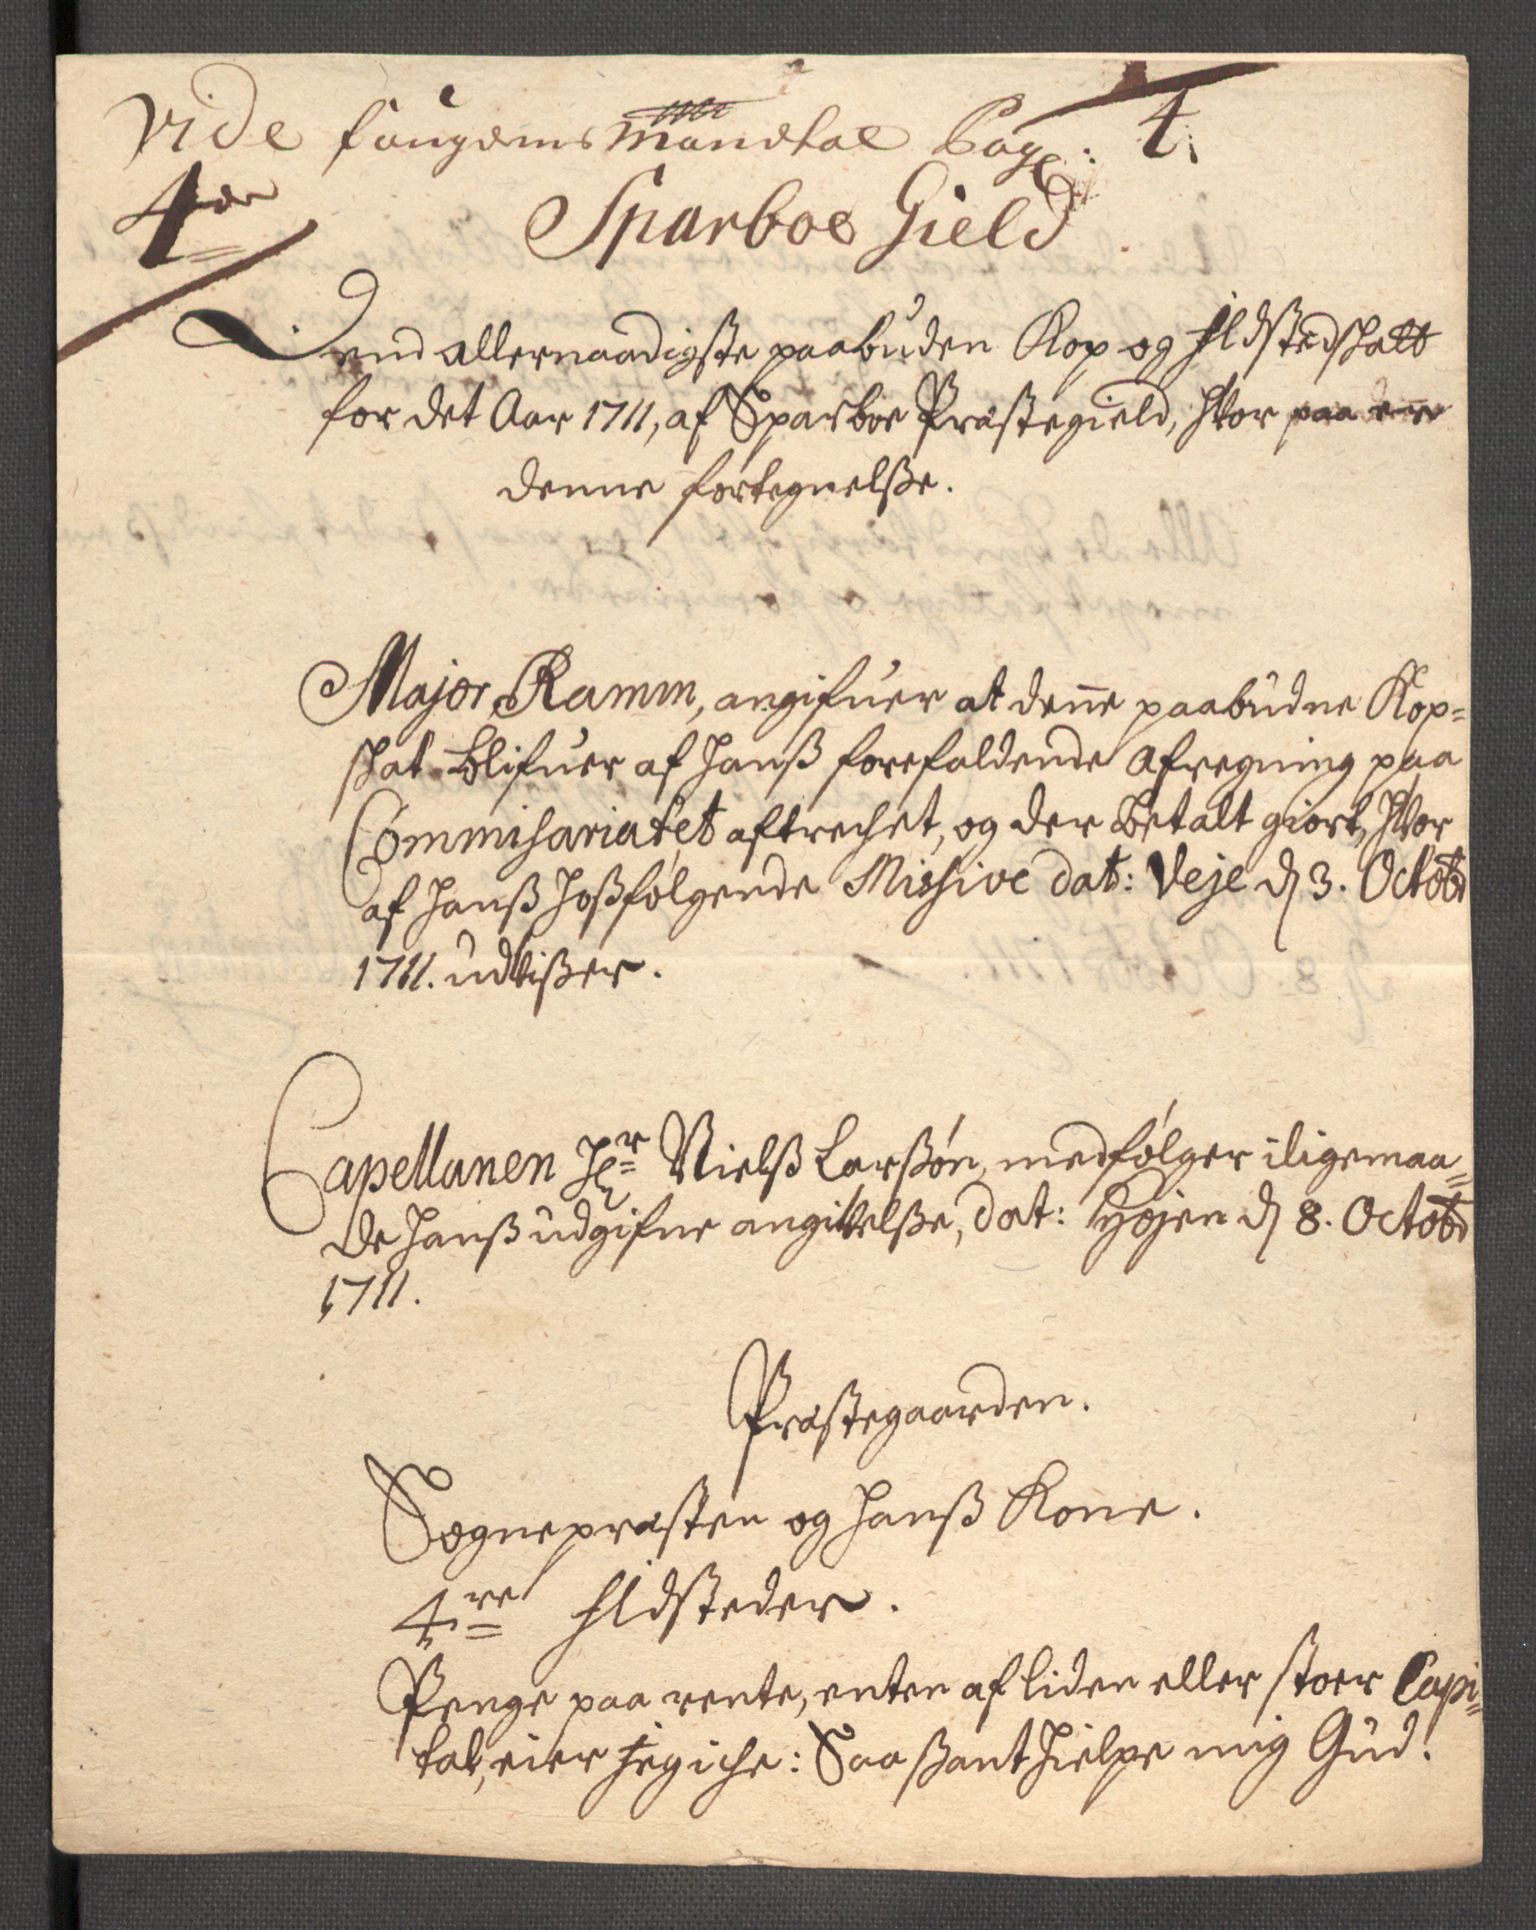 Vide fougdens Mandtal Pag: 4.
4de
Sparboe Gield
Dend allernaadigste paabuden Kop og Ildstedskatt
for det Aar 1711, af Sparboe Præstegield, hvor paa er
denne fortegnelsße.
Major Ramm, angifuer at denne paabudne Kop=
skat blifuer af hanß forefaldende afregning paa
Commisariatet aftrechet, og der betalt giort, hvor
af hanß hoßfølgende Missive dat: Veje d 3. Octobr
1711. udvißer.
Capellanen Hr Nielß Larßøn, medfølger iligemaa=
de hanß udgifne angivelße, dat: Højen d 8. Octobr
1711.
Præstegaarden.
Sognepræsten og hanß Kone.
4re Ildsteder.
Penge paa rente, enten af liden eller stoer Capi=
tal, eier jeg iche: Saa ßant hielpe mig Gud!